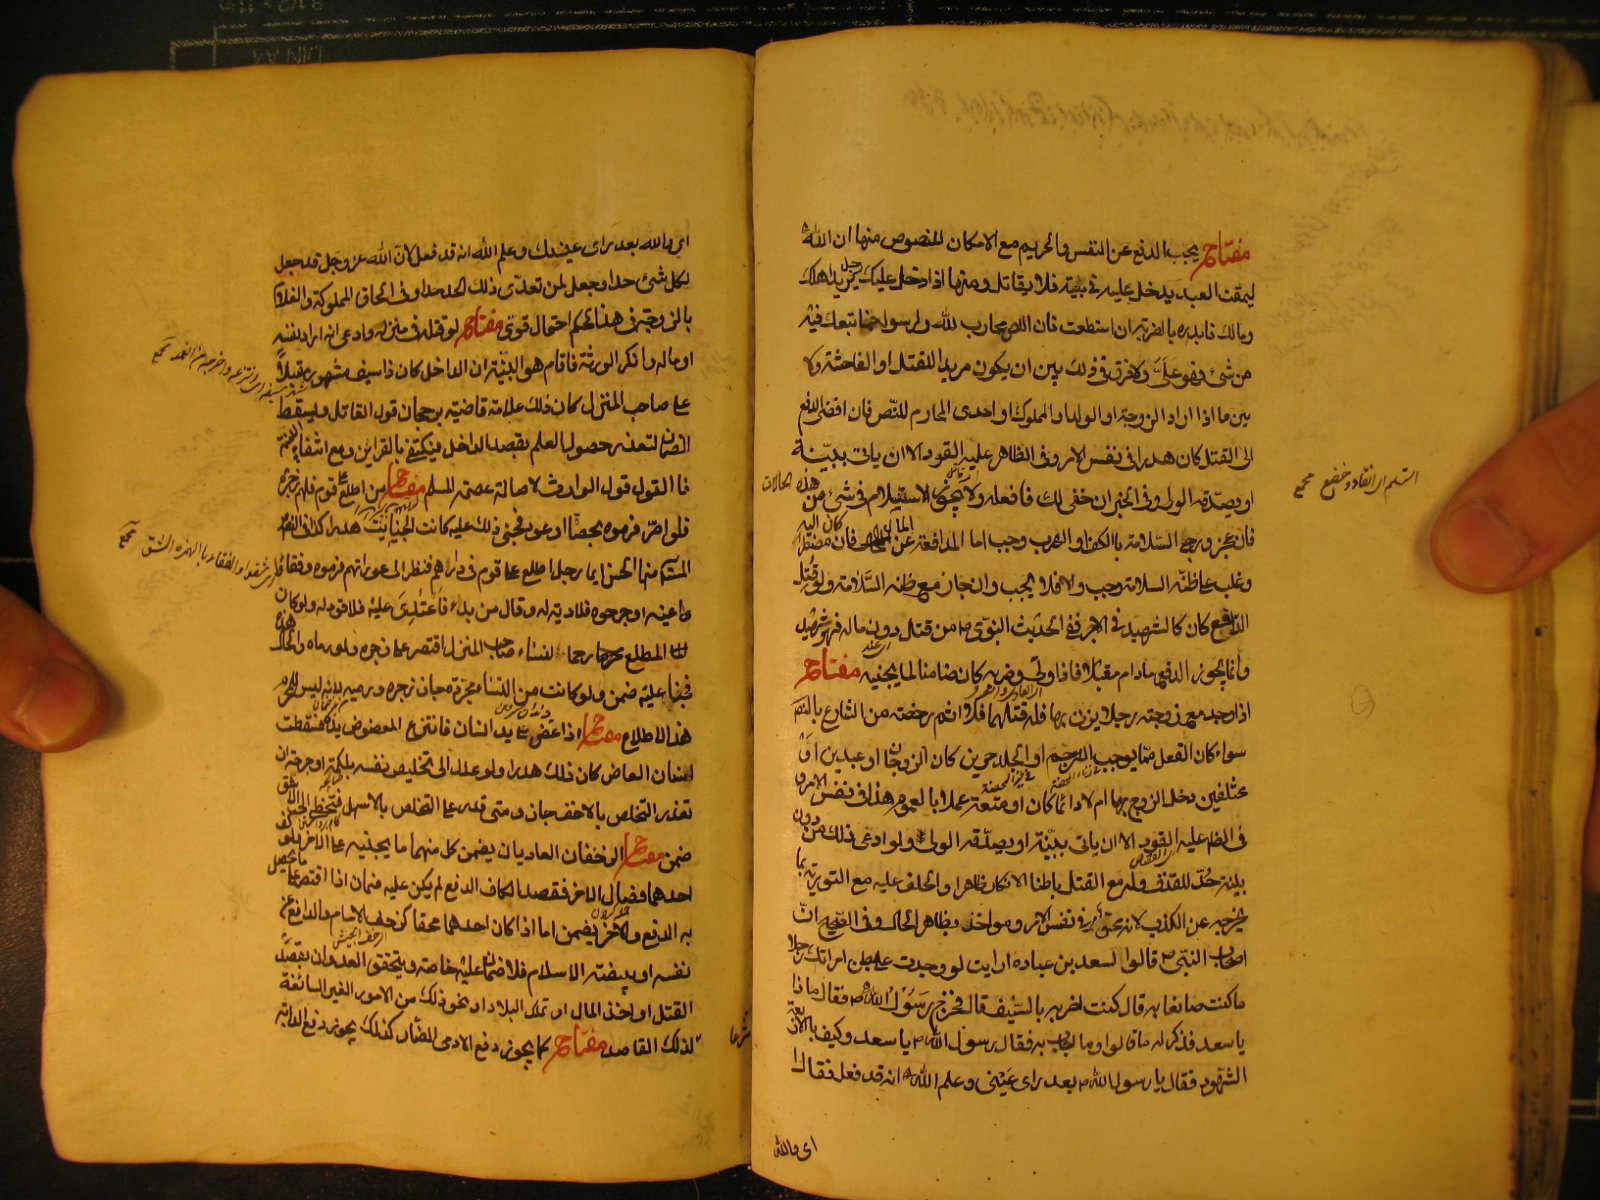 مفتاح يجب الدفع عن النفس والحريم مع الامكان للنصوص منها ان الله
ليمقت العبد يدخل عليه في بيته فلا يقاتل ومنها اذا دخل عليك رجل يريد اهلك
ومالك فابدره بالضربة ان استطعت فان اللص محارب لله ولرسوله فما تبعك فيه
من شئ فهو علىّ ولا فرق في ذلك بين ان يكون مريدا للقتل او الفاحشة ولا
بين ما اذا اراد الزوجة او الولد او المملوك او احدى المحارم للنص فان افضى الدفع
الى القتل كان هدرا في نفس الامر وفي الظاهر عليه القود الا ان ياتي ببينة
او يصدقه الولي وفي الخبر ان خفي لك فافعله ولا يجوز الاستسلام في شئ من هذه الحالات
فان عجز ورجى السلامة بالكف او الهرب وجب اما المدافعة عن المال فان كان مضطرا اليه
وغلب على ظنه السلامة وجب والا فلا يجب وان جاز مع ظنه السلامة ولو قتل
الدافع كان كالشهيد في الاجر ففي الحديث النبوي ص من قتل دون ماله فهو شهيد
وانما يجوز الدفع مادام مقبلا فاذا ولى وضربه كان ضامنا لما يجنيه مفتاح
اذا وجد مع زوجته رجلا يزني بها فله قتلهما فلا اثم رخصة من الشارع بالنص
سواء كان الفعل مما يوجب الرجم او الجلد حرين كان الزوجان او عبدين او
مختلفين دخل الزوج بها ام لا دائما كان او متعة عملا بالعموم هذا في نفس الامر و
في الظاهر عليه القود الا ان ياتي ببينة او يصدقه الولي ولو ادعى ذلك من دون
بينة حد للقذف وله مع القتل باطنا الانكار ظاهرا والحلف عليه مع التورية بما
يخرجه عن الكذب لانه محق في نفس الامر ومواخذ بظاهر الحال وفي الصحيح ان
اصحاب النبي ص قالوا لسعد بن عباده ارايت لو وجدت على بطن امراتك رجلا
ما كنت صانعا به قال كنت اضربه بالسيف قال فخرج رسول الله ص فقال ماذا
يا سعد فذكر له ما قالوا وما اجاب به فقال رسول الله ص يا سعد وكيف بالاربعة
الشهود فقال يا رسول الله ص بعد راى عيني وعلم الله انه قد فعل فقال
اى والله
اى والله بعد راى عينيك وعلم الله انه قد فعل لان الله عز وجل قد جعل
لكل شئ حدا وجعل لمن تعدى ذلك الحد حدا وفي الحاق المملوكة والغلام
بالزوجة في هذا الحكم احتمال قوي مفتاح لو قتله في منزله وادعى انه اراد نفسه
او ماله وانكر الورثة فاقام هو البينة ان الداخل كان ذا سيف مشهور مقبلا
على صاحب المنزل كان ذلك علامة قاضية برجحان قول القاتل ويسقط
الضمان لتعذر حصول العلم بقصد الداخل فيكتفى بالقراين ومع انتفاء البينة
فالقول قول الوارث لاصالة عصمة المسلم مفتاح من اطلع على قوم فلهم زجره
فلو اصر فرموه بحصاة او عود فجنى ذلك عليه كانت الجناية هدرا كذا في النصوص
منها الحسن ايما رجل اطلع على قوم في دارهم فنظر الى عوراتهم فرموه وفقأوا
عينه او جرحوه فلا دية له وقال من بدء فاعتدى عليه فلا قود له ولو كان
المطلع رحما لنساء صاحب المنزل اقتصر على زجره ولو رماه والحال هذه
فجنى عليه ضمن ولو كانت من النساء مجردة جاز زجره ورميه لانه ليس للمحرم
هذا الاطلاع مفتاح اذا عض على يد انسان فانتزع المعضوض يده فسقطت
اسنان العاض كان ذلك هدرا ولو عدل الى تخليص نفسه بلكمة او جرحة ان
تعذر التخلص بالاخف جاز ومتى قدر على التخلص بالاسهل فتخطى الى الاشق
ضمن مفتاح الزحفان العاديان يضمن كل منهما ما يجنيه على الاخر ولو كف
احدهما فصال الاخر فقصد الكاف الدفع لم يكن عليه ضمان اذا اقتصر على ما يحصل
به الدفع والآخر يضمن اما اذا كان احدهما محقا كزحف الامام والدافع عن
نفسه او بيضة الاسلام فلا ضمان عليه خاصة ويتحقق العدوان بقصد
القتل او اخذ المال او تملك البلاد او نحو ذلك من الامور الغير السائغة شرعا
لذلك القاصد مفتاح كما يجوز دفع الادمي الصائل كذلك يجوز دفع الدابة